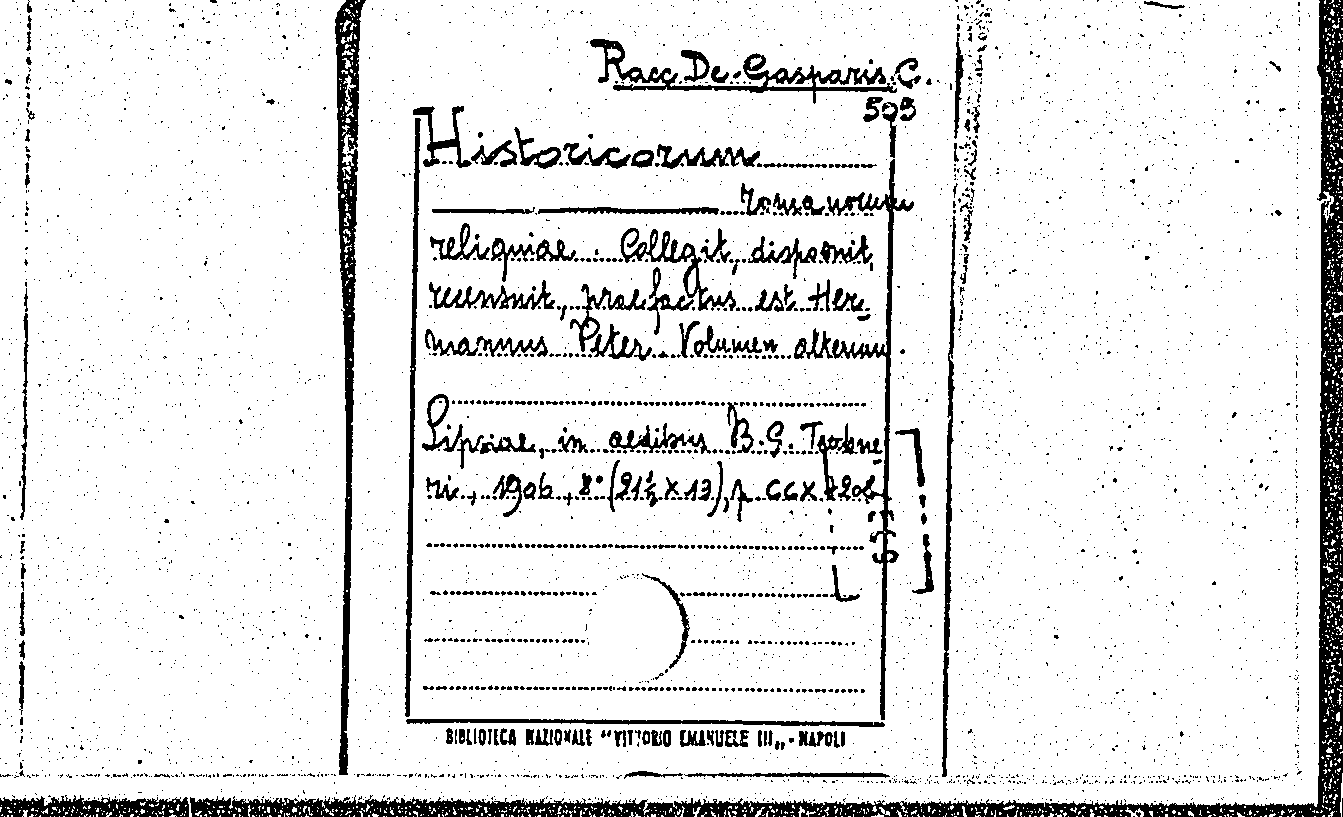 Racc. De-Gasparis C.
509
Historicorum
romanorum
reliquiae. Collegit, disposuit,
recensuit, praefactus est Her-
mannus Peter. Volumen alterum.
Lipsiae, in aedibus B. G. Teubne-
ri, 1906, 8° (21½ X 13), p. CCX +208
BIBLIOTECA NAZIONALE "VITTORIO EMANUELE III„ - NAPOLI